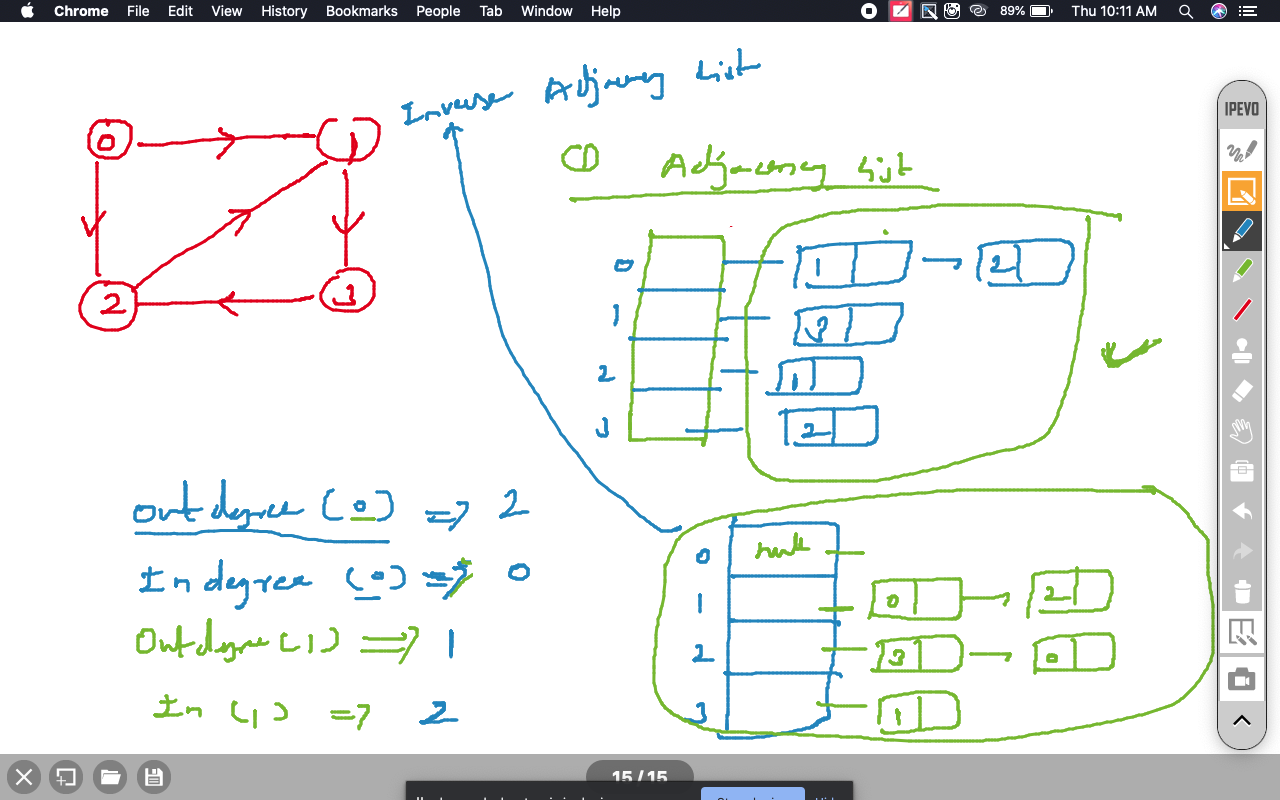 Chrome File Edit View History Bookmarks People Tab Window Help 89% Thu 10:11 AM
Inverse Adjacency List
IPEVO
0 1
2 3
① Adjacency List
0 1 2
1 3
2 1
3 2
Outdegree (0) => 2
Indegree (0) => 0
Outdegree (1) => 1
In (1) => 2
0 null
1 0 2
2 3 0
3 1
15 / 15